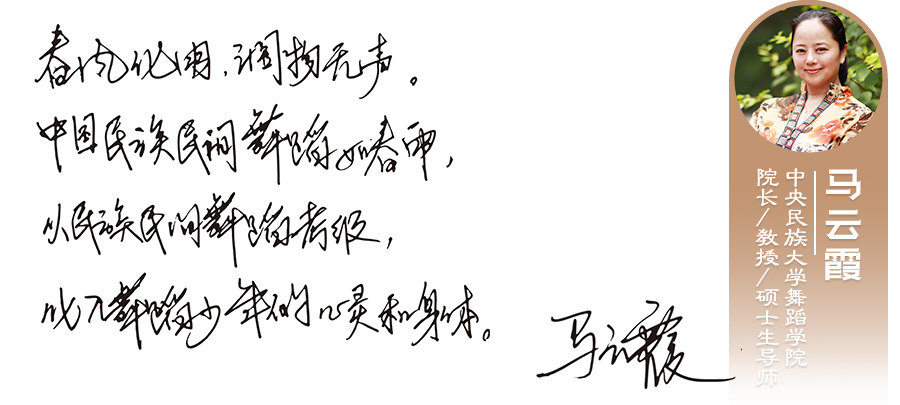 春风化雨，润物无声。
中国民族民间舞蹈如春雨，
民族民间舞蹈考级，
舞蹈少年的心灵和身体。
马云霞
马云霞
中央民族大学舞蹈学院
院长/教授/硕士生导师